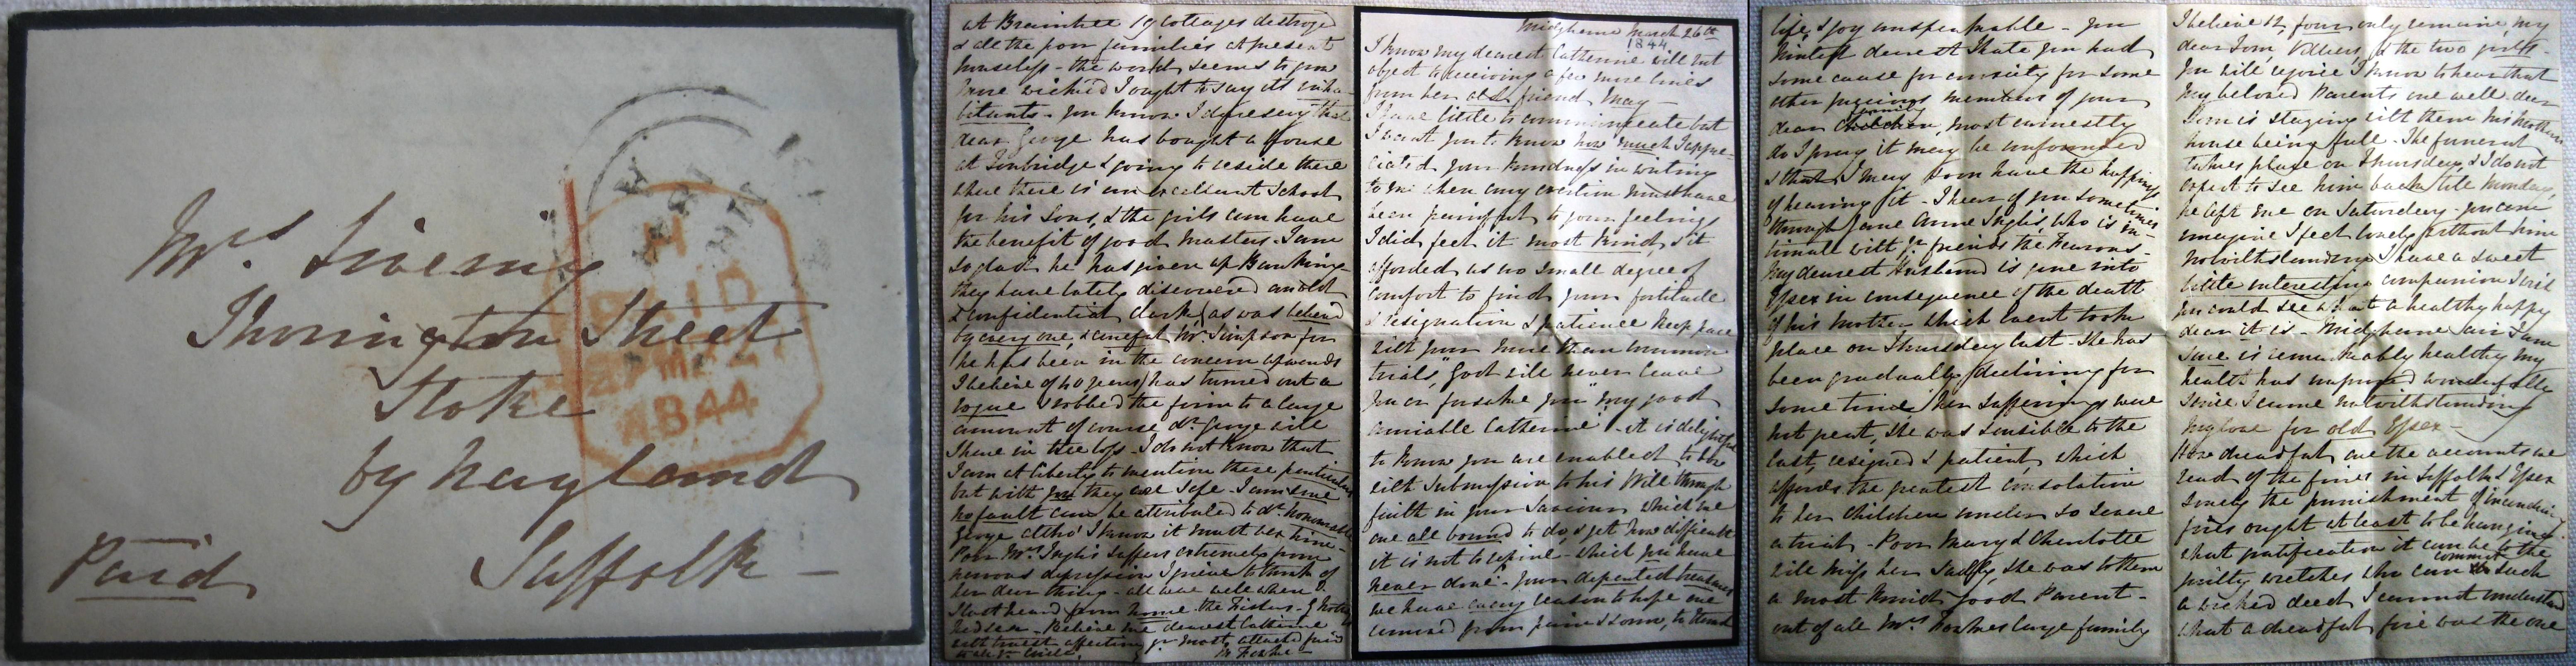 Mrs. Liveing
Thorington Street
Stoke
by Nayland
Suffolk -
Paid
H
PAID
27 MR 27
1844
Midgham March 26th
1844
I know my dearest Catherine will not
object to receiving a few more lines
from her old friend Mary -
I have little to communicate but
I want you to know how much I appre-
ciated your kindness in writing
to me when any exertion must have
been painful to your feelings
I did feel it most kind, & it
afforded us no small degree of
comfort to find your fortitude
& resignation & patience keep pace
with your more than common
trials, "God will never leave
you or forsake you" my good
amiable Catherine - it is delightful
to know you are enabled to bow
with submission to his Will through
faith in your Saviour which we
are all bound to do, & yet how difficult
it is not to repine - which you have
never done - your departed treasures
we have every reason to hope are
removed from pain & sorrow, to eternal
life & joy unspeakable - you
hinted dearest Kate you had
some cause for anxiety for some
other precious members of your
dear family, most earnestly
do I pray it may be unfounded
& that I may soon have the happiness
of hearing it - I hear of you sometimes
through Jane Anne Inglis, who is in-
timate with yr. friends the Fearons -
My dearest Husband is gone into
Essex in consequence of the death
of his Mother which event took
place on Thursday last - She has
been gradually declining for
some time, her sufferings were
not great, she was sensible to the
last, resigned & patient, which
affords the greatest consolation
to her children under so severe
a trial - Poor Mary & Charlotte
will miss her sadly, she was to them
a most kind good Parent -
out of all Mrs. large family
I believe 12, four only remain, my
dear Tom, & the two girls -
You will rejoice I know to hear that
my beloved Parents are well - dear
Tom is staying with them his Mothers
house being full - The funeral
takes place on Thursday, & I do not
expect to see him back till Monday,
he left me on Saturday - you can
imagine I feel lonely without him
notwithstanding I have a sweet
little interesting companion I wish
you could see what a healthy happy
dear it is - Midgham air I am
sure is remarkably healthy my
health has improved wonderfully
since I came notwithstanding
my love for old Essex -
How dreadful are the accounts we
read of the fires in Suffolk & Essex
surely the punishment of incendiary
fires ought at least to be hanging.
what gratification it can be to the
guilty wretches who can commit such
a wicked deed I cannot understand
what a dreadful fire was the one
at Braintree 19 Cottages destroyed
& all the poor families at present
houseless - the world seems to grow
more wicked I ought to say its inha-
bitants - you know I daresay that
dear George has bought a House
at Tonbridge & going to reside there
where there is an excellent School
for his Sons, & the girls can have
the benefit of good Masters - I am
so glad he has given up Banking -
they have lately discovered an old
& confidential clerk (as was believed
by every one, & careful Mr. Simpson for
he has been in the concern upwards
I believe of 40 years) has turned out a
rogue & robbed the firm to a large
amount of course dr. George will
share in the loss - I do not know that
I am at liberty to mention these particulars
but with you they are safe - I am sure
no fault can be attributed to dr. honourable
George altho' I know it must vex him -
Poor Mrs. Inglis suffers extremely from
nervous depression I grieve to think of
her dear thing - all were well when I
last heard from home
Believe me dearest Catherine
yr. most attached friend